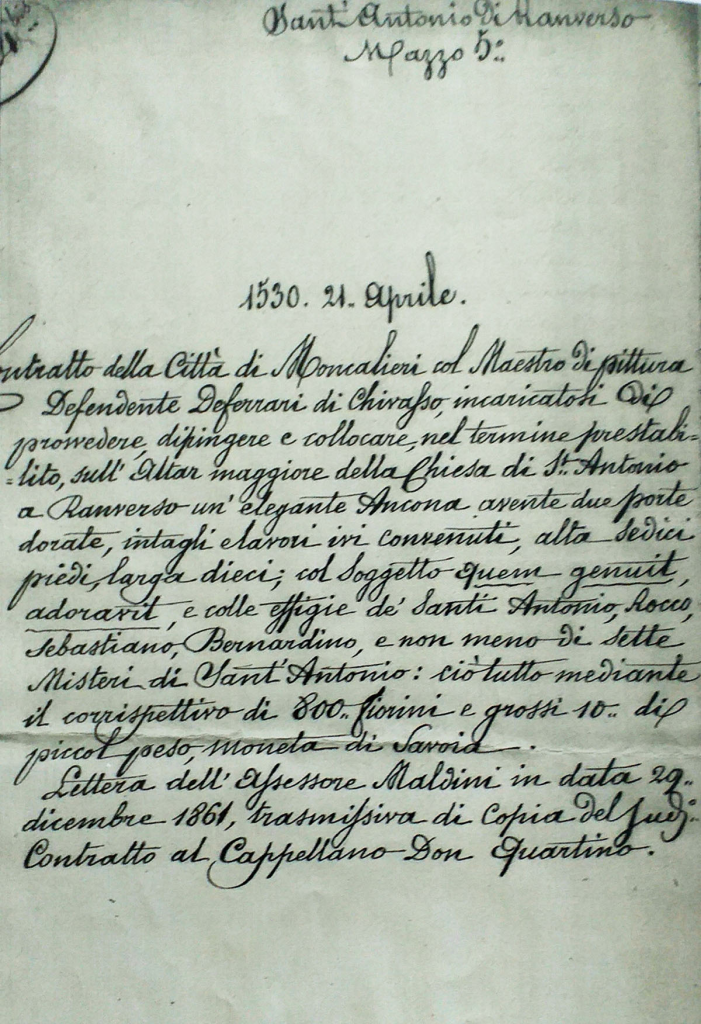 Sant' Antonio Di Ranverso
Mazzo 5.º
1530. 21. Aprile.
Contratto della Città di Moncalieri col Maestro di pittura
Defendente Deferrari di Chivasso, incaricatosi di
provvedere, dipingere e collocare, nel termine prestabi=
=lito, sull' Altar maggiore della Chiesa di St. Antonio
a Ranverso un' elegante Ancona avente due porte
dorate, intagli e lavori ivi convenuti, alta sedici
piedi, larga dieci; col soggetto quem genuit,
adoravit, e colle effigie de' Santi Antonio, Rocco,
Sebastiano, Bernardino, e non meno di sette
Misteri di Sant' Antonio: ciò tutto mediante
il corrispettivo di 800.. fiorini e grossi 10.. di
piccol peso, moneta di Savoia.
Lettera dell' Assessore Maldini in data 29..
dicembre 1861, trasmissiva di Copia del sudº
Contratto al Cappellano Don Quartino.